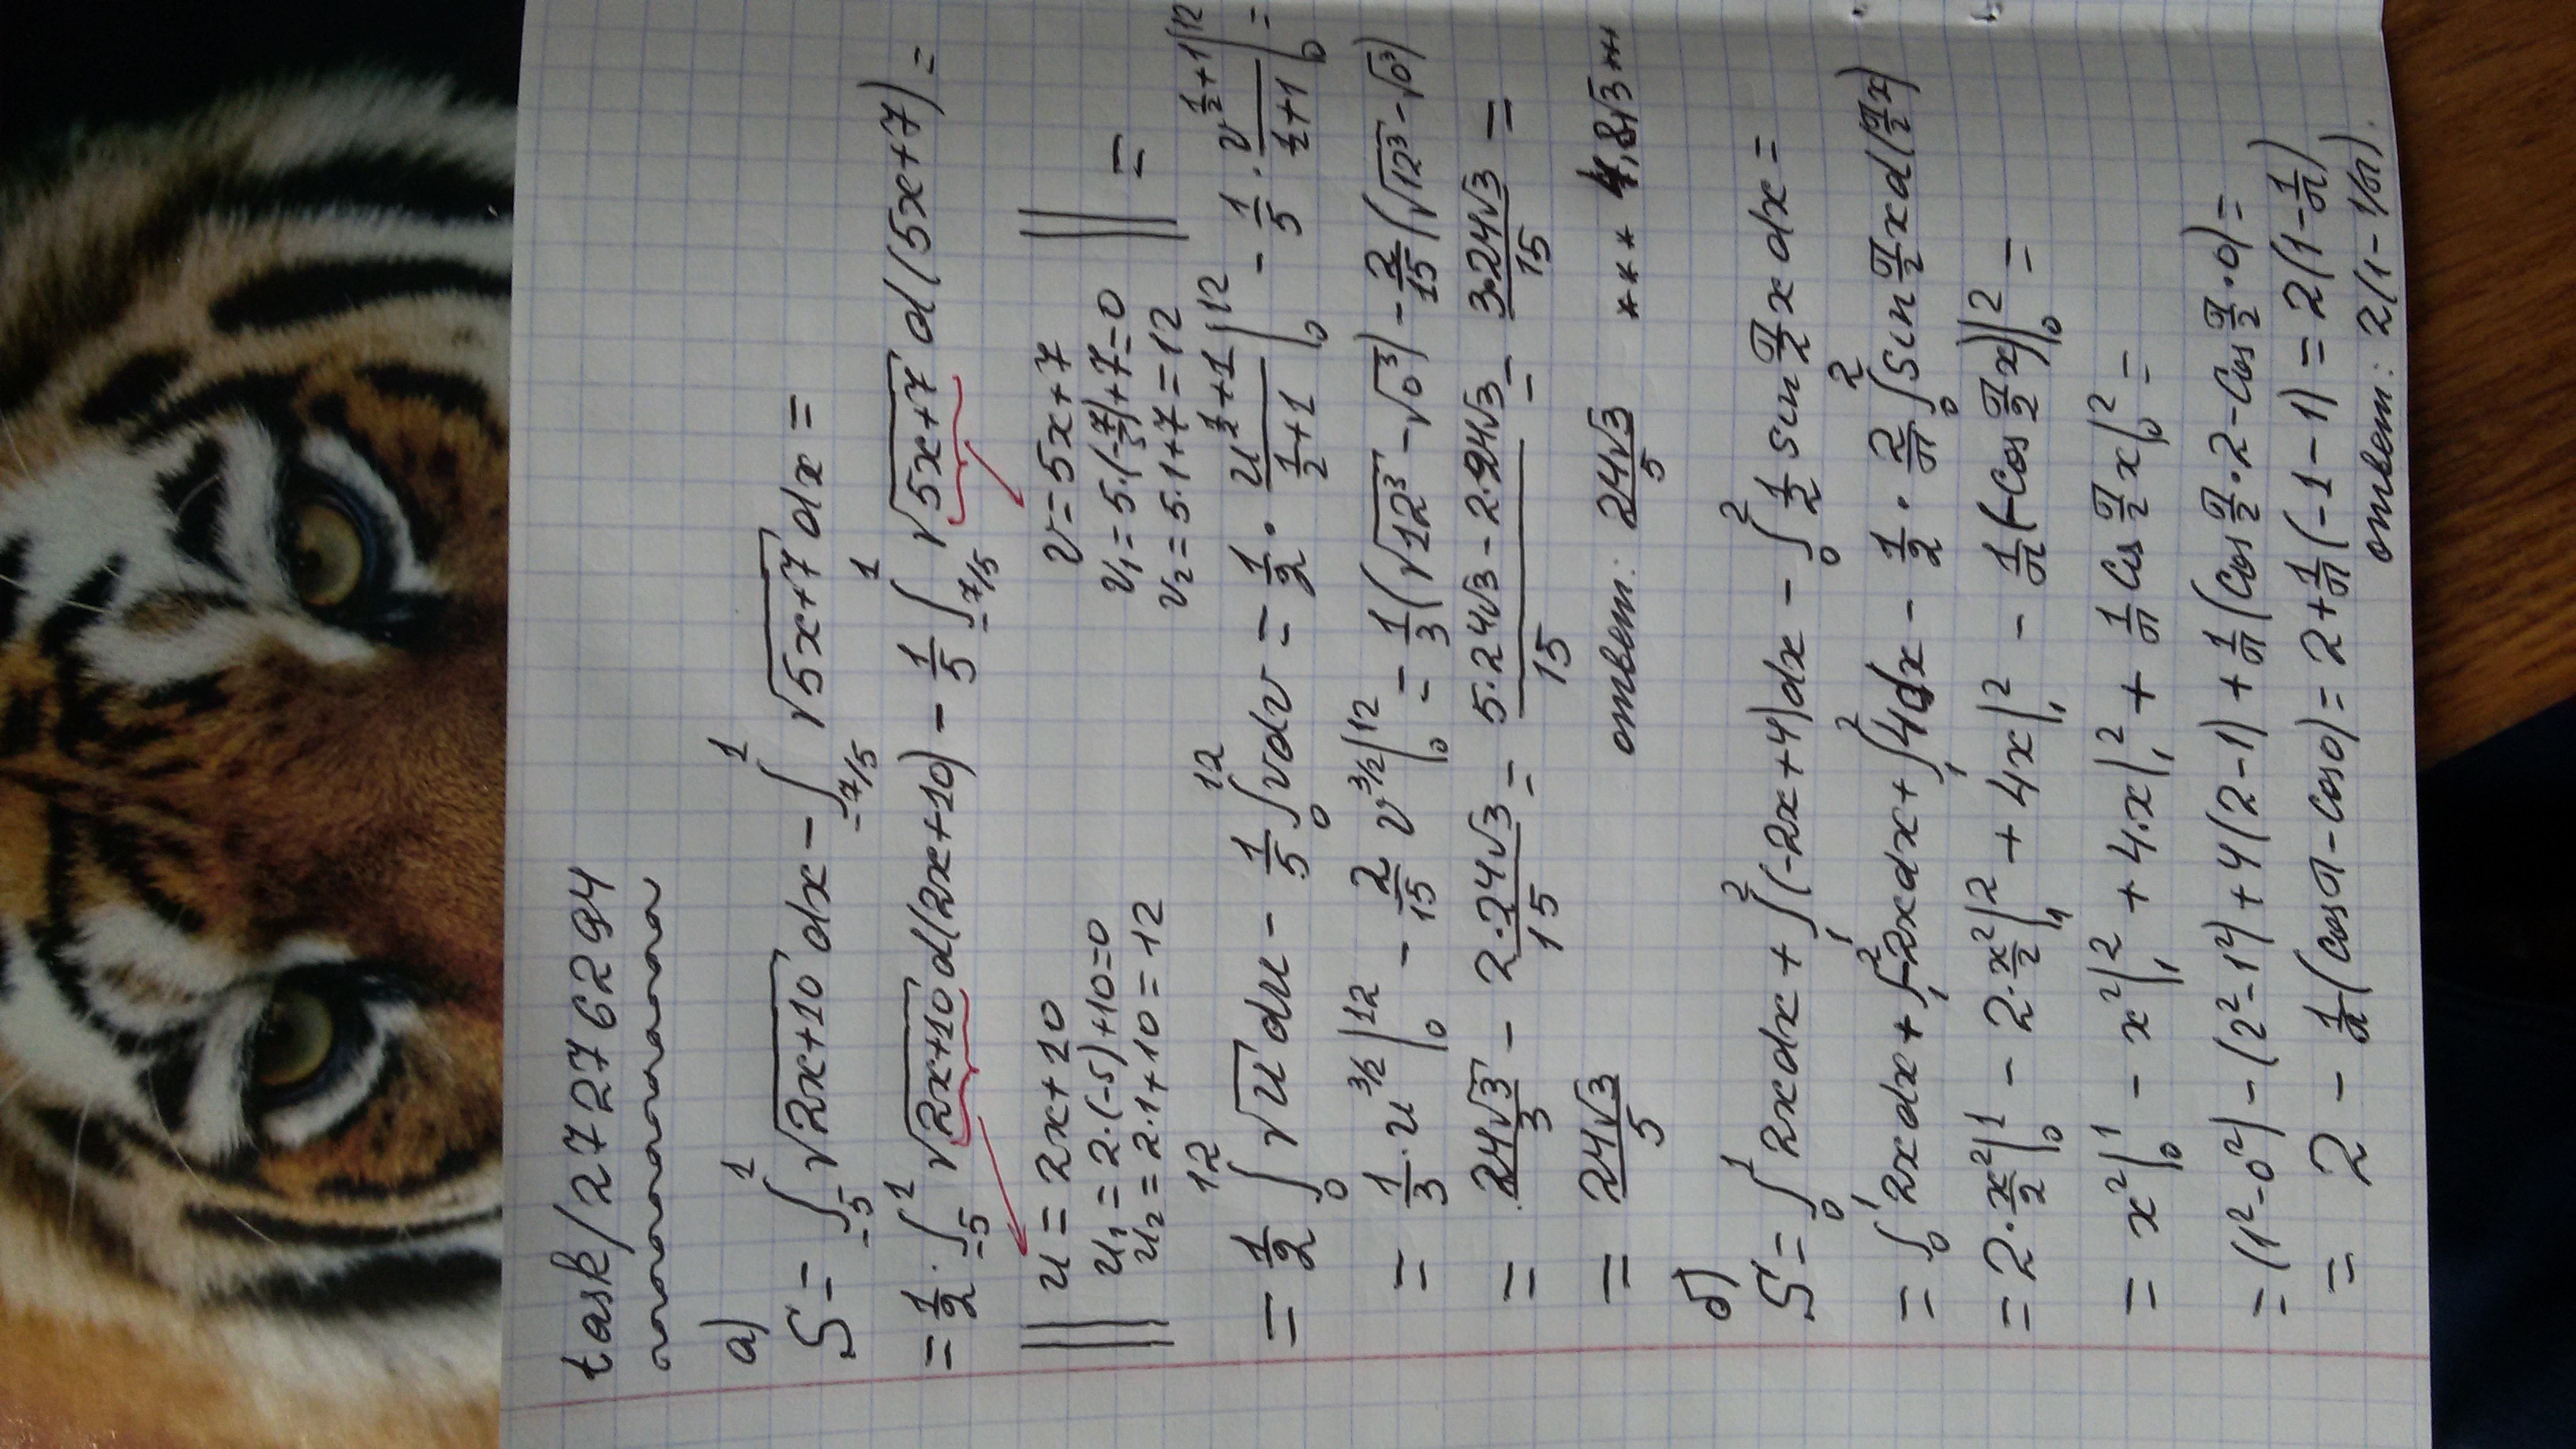 task/27276294
a)
S = ∫₋₅¹ √(2x+10) dx − ∫₋₇/₅¹ √(5x+7) dx =
= 1/2 · ∫₋₅¹ √(2x+10) d(2x+10) − 1/5 ∫₋₇/₅¹ √(5x+7) d(5x+7) =
u = 2x+10 v = 5x+7
u₁ = 2·(−5)+10=0 v₁ = 5·(−7/5)+7=0
u₂ = 2·1+10 = 12 v₂ = 5·1+7=12 =
= 1/2 ∫₀¹² √u du − 1/5 ∫₀¹² v dv = 1/2 · u^(1/2+1)/(1/2+1) |₀¹² − 1/5 · v^(1/2+1)/(1/2+1) |₀¹² =
= 1/3 · u^(3/2) |₀¹² − 2/15 v^(3/2) |₀¹² = 1/3 (√12³ − √0³) − 2/15 (√12³ − √0³)
= 24√3/3 − 2·24√3/15 = (5·24√3 − 2·24√3)/15 = 3·24√3/15 =
= 24√3/5 ответ: 24√3/5 *** 4,8√3 ***
б)
S = ∫₀¹ 2x dx + ∫₁² (−2x+4) dx − ∫₀² 1/2 sin π/2 x dx =
= ∫₀¹ 2x dx + ∫₁² −2x dx + ∫₁² 4dx − 1/2 · 2/π ∫₀² sin π/2 x d(π/2 x)
= 2 · x²/2 |₀¹ − 2 · x²/2 |₁² + 4x |₁² − 1/π (−cos π/2 x) |₀² =
= x² |₀¹ − x² |₁² + 4·x |₁² + 1/π cos π/2 x |₀² =
= (1²−0²) − (2²−1²) + 4(2−1) + 1/π (cos π/2 ·2 − cos π/2 ·0) =
= 2 − 1/π (cos π − cos 0) = 2 + 1/π (−1 − 1) = 2(1 − 1/π)
ответ: 2(1 − 1/π).